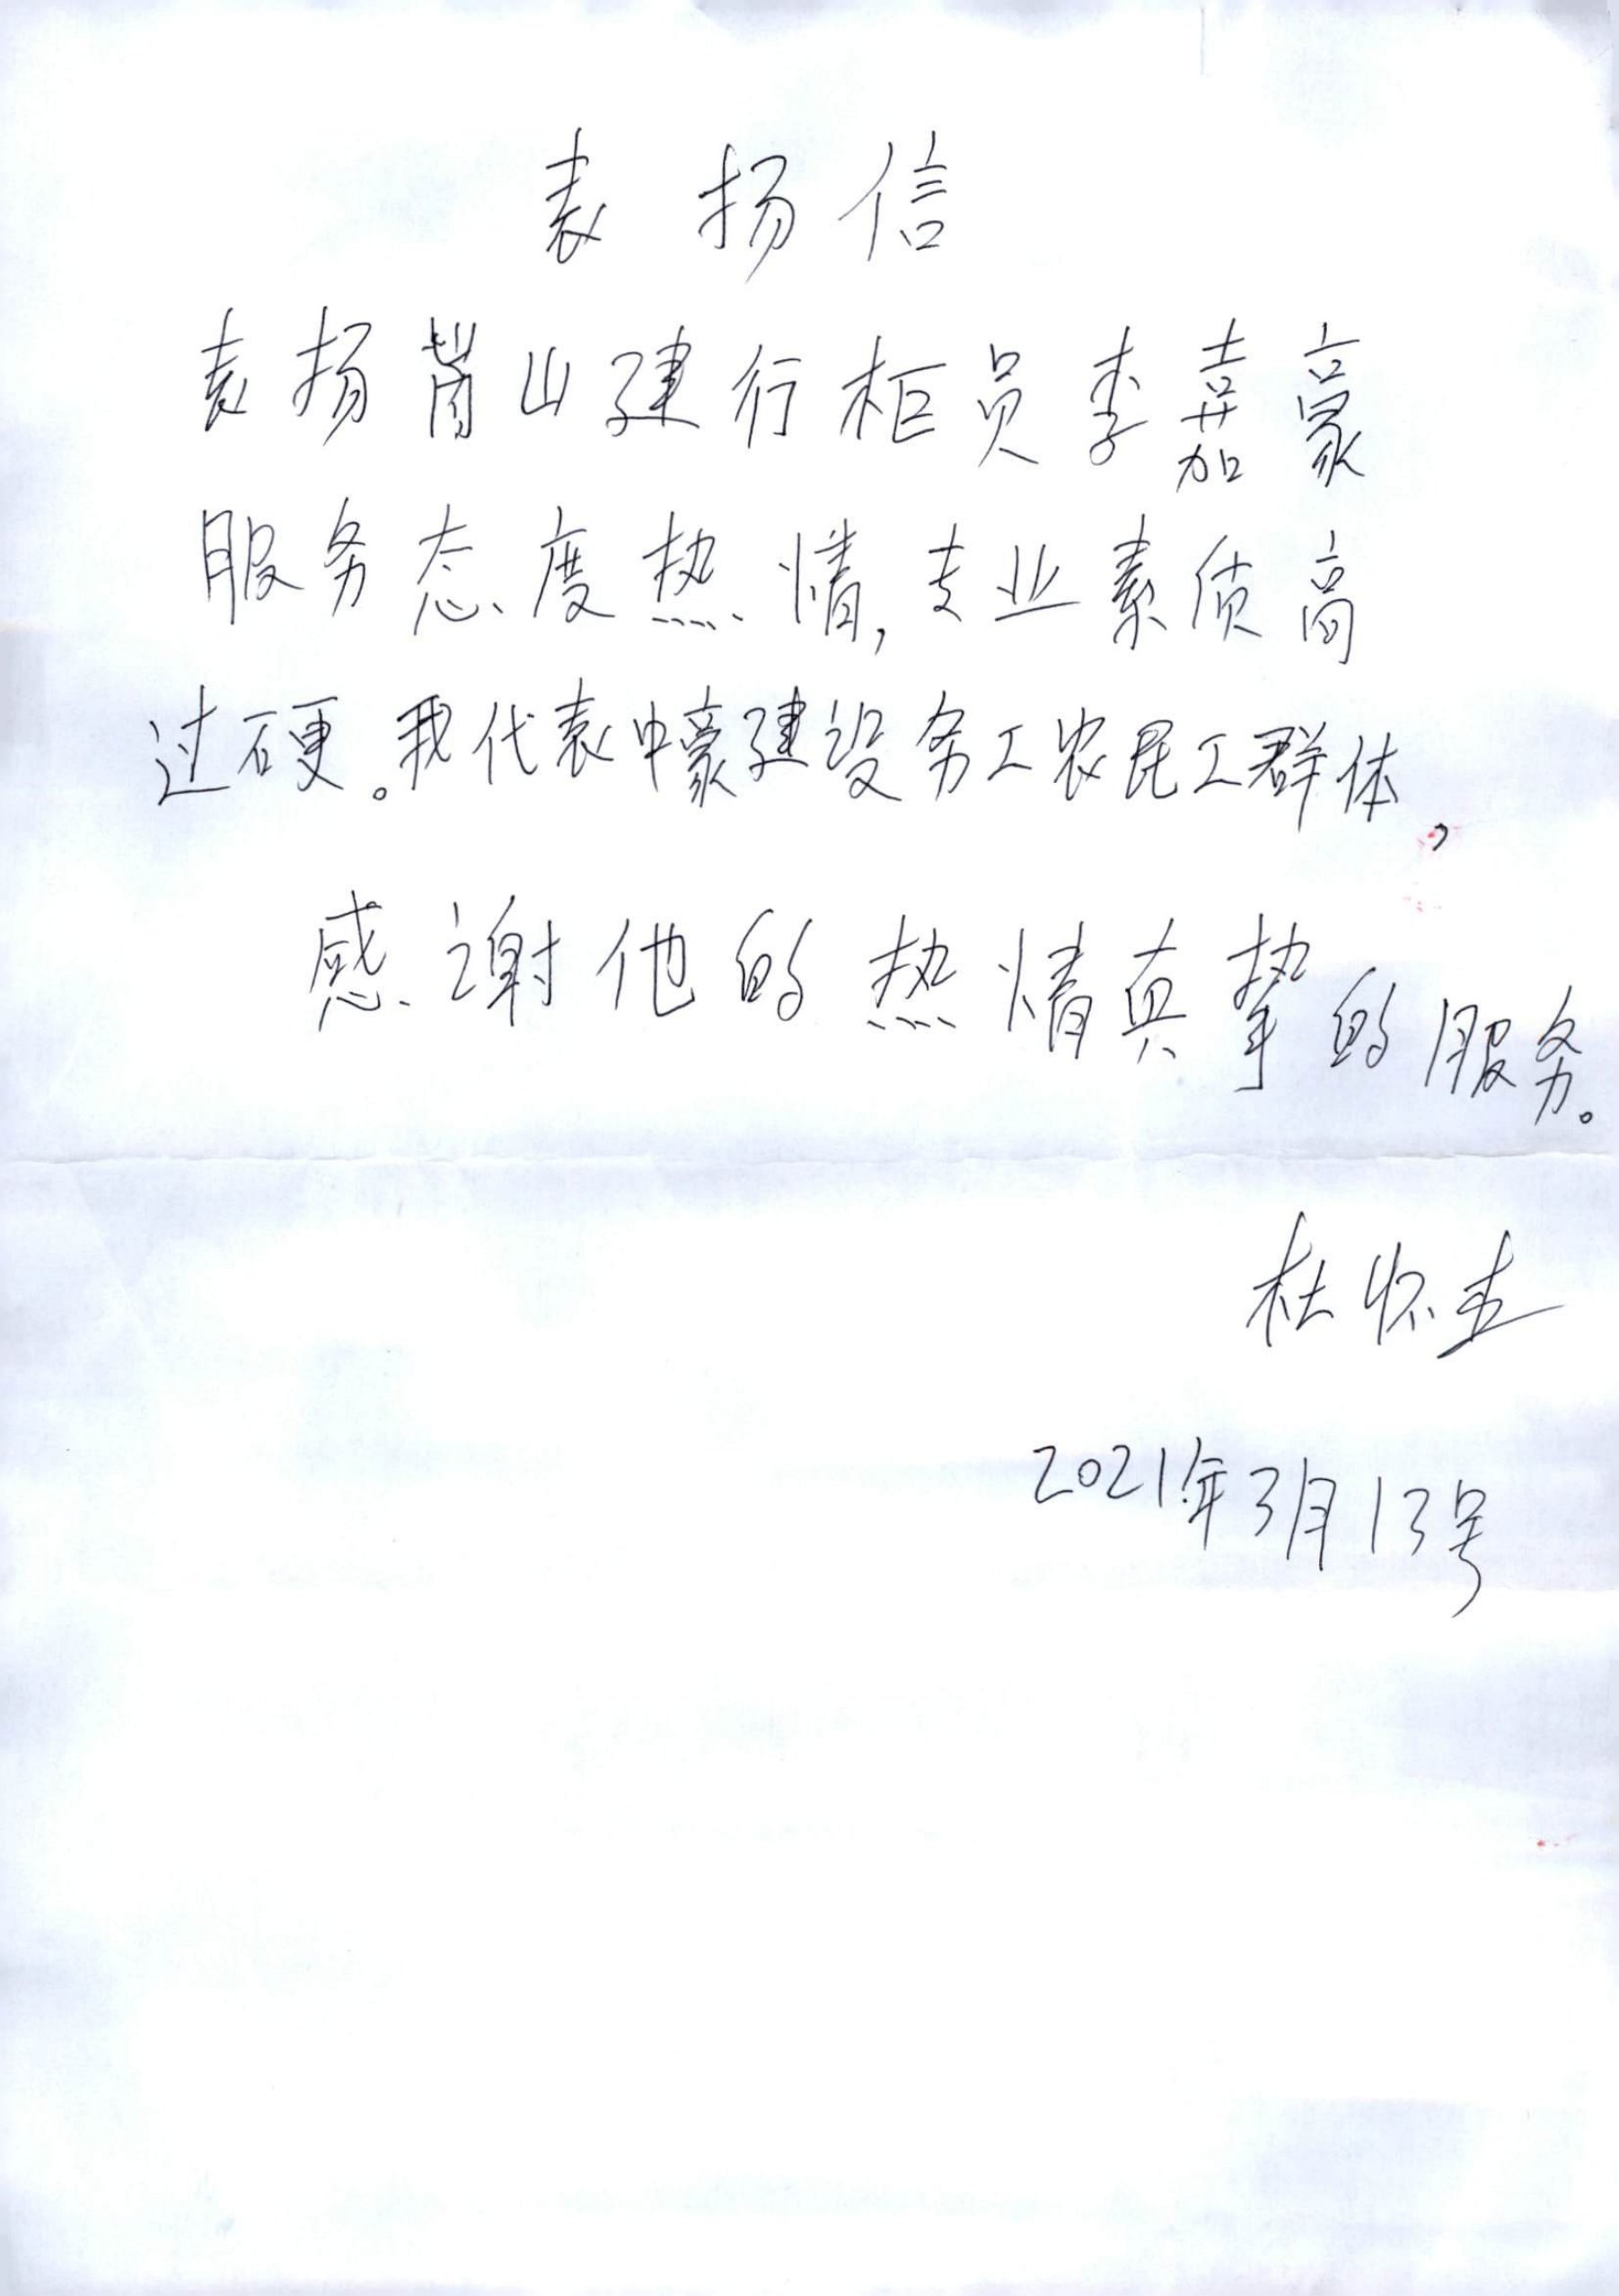 表扬信
表扬萧山建行柜员李嘉豪
服务态度热情,专业素质高
过硬。我代表中豪建设务工农民工群体,
感谢他的热情真挚的服务。
杜怀
2021年3月13号